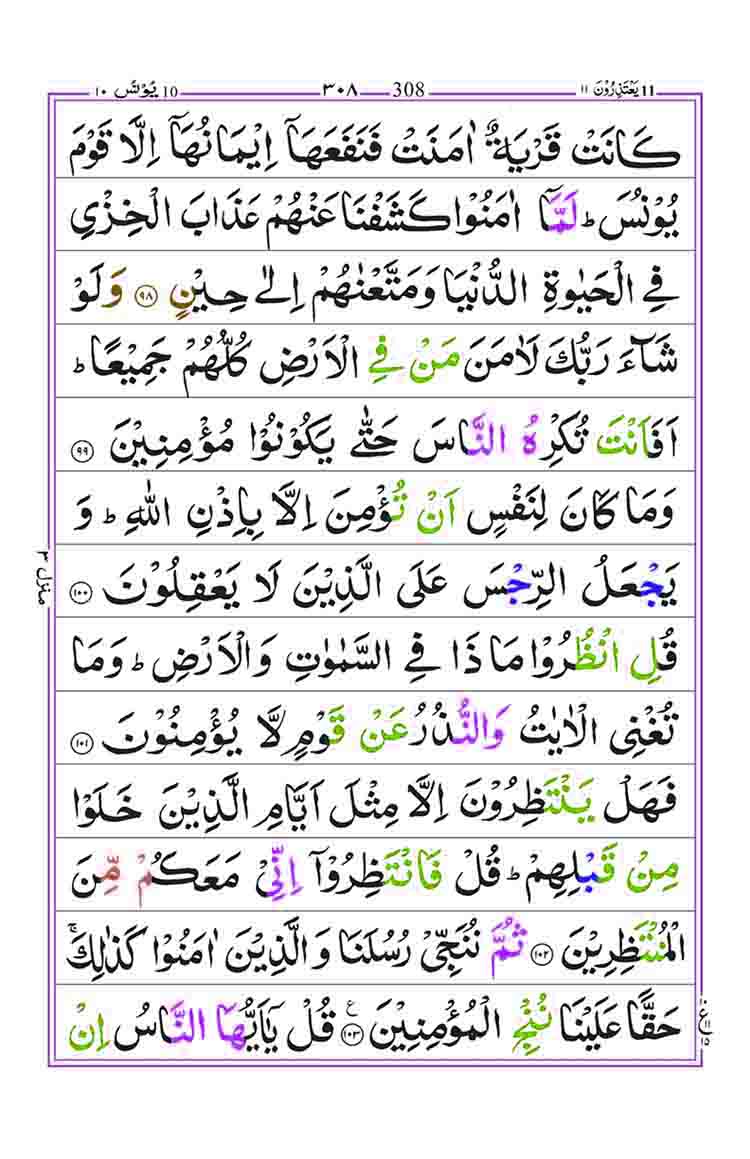 11 يَعْتَذِرُوْنَ ١١ 308 ٣٠٨ 10 يُوْنُس ١٠
كَانَتْ قَرْيَةٌ اٰمَنَتْ فَنَفَعَهَاۤ اِيْمَانُهَاۤ اِلَّا قَوْمَ
يُوْنُسَ ؕ لَمَّاۤ اٰمَنُوْا كَشَفْنَا عَنْهُمْ عَذَابَ الْخِزْيِ
فِي الْحَيٰوةِ الدُّنْيَا وَمَتَّعْنٰهُمْ اِلٰى حِيْنٍ ﴿۹۸﴾ وَلَوْ
شَآءَ رَبُّكَ لَاٰمَنَ مَنْ فِي الْاَرْضِ كُلُّهُمْ جَمِيْعًا ؕ
اَفَاَنْتَ تُكْرِهُ النَّاسَ حَتّٰى يَكُوْنُوْا مُؤْمِنِيْنَ ﴿۹۹﴾
وَمَا كَانَ لِنَفْسٍ اَنْ تُؤْمِنَ اِلَّا بِاِذْنِ اللّٰهِ ؕ وَ
يَجْعَلُ الرِّجْسَ عَلَى الَّذِيْنَ لَا يَعْقِلُوْنَ ﴿۱۰۰﴾
قُلِ انْظُرُوْا مَاذَا فِي السَّمٰوٰتِ وَالْاَرْضِ ؕ وَمَا
تُغْنِى الْاٰيٰتُ وَالنُّذُرُ عَنْ قَوْمٍ لَّا يُؤْمِنُوْنَ ﴿۱۰۱﴾
فَهَلْ يَنْتَظِرُوْنَ اِلَّا مِثْلَ اَيَّامِ الَّذِيْنَ خَلَوْا
مِنْ قَبْلِهِمْ ؕ قُلْ فَانْتَظِرُوْۤا اِنِّيْ مَعَكُمْ مِّنَ
الْمُنْتَظِرِيْنَ ﴿۱۰۲﴾ ثُمَّ نُنَجِّيْ رُسُلَنَا وَالَّذِيْنَ اٰمَنُوْا كَذٰلِكَ ۚ
حَقًّا عَلَيْنَا نُنْجِ الْمُؤْمِنِيْنَ ﴿۱۰۳﴾ ع قُلْ يٰۤاَيُّهَا النَّاسُ اِنْ
منزل ٣
ع ١١ ١٥